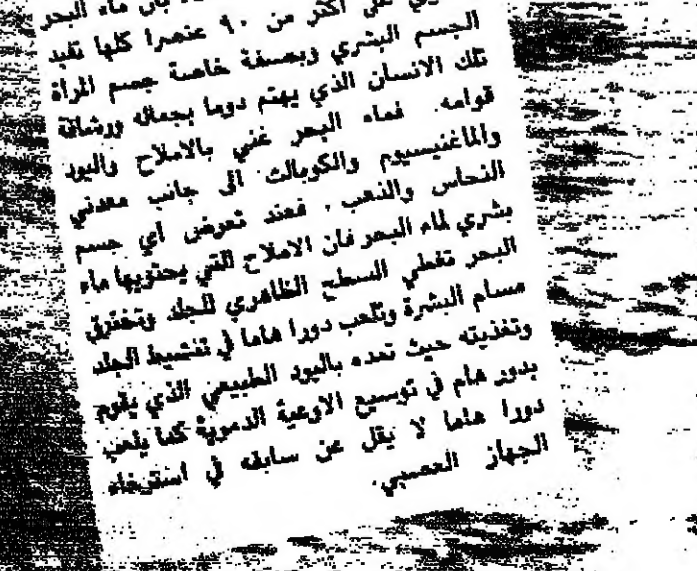 بأن ماء البحر
على أكثر من ٩٠ عنصرا كلها تفيد
الجسم البشري وبصفة خاصة جسم المرأة
تلك الانسان الذي يهتم دوما بجماله ورشاقة
قوامه. فماء البحر غني بالاملاح واليود
والماغنيسيوم والكوبالت الى جانب معدني
النحاس والذهب، فعند تعرض أي جسم
بشري لماء البحر فان الاملاح التي يحتويها ماء
البحر تغطي السطح الظاهري للجلد وتخترق
مسام البشرة وتلعب دورا هاما في تنشيط الجلد
وتغذيته حيث تمده باليود الطبيعي الذي يقوم
بدور هام في توسيع الاوعية الدموية كما يلعب
دورا هاما لا يقل عن سابقه في استرخاء
الجهاز العصبي.